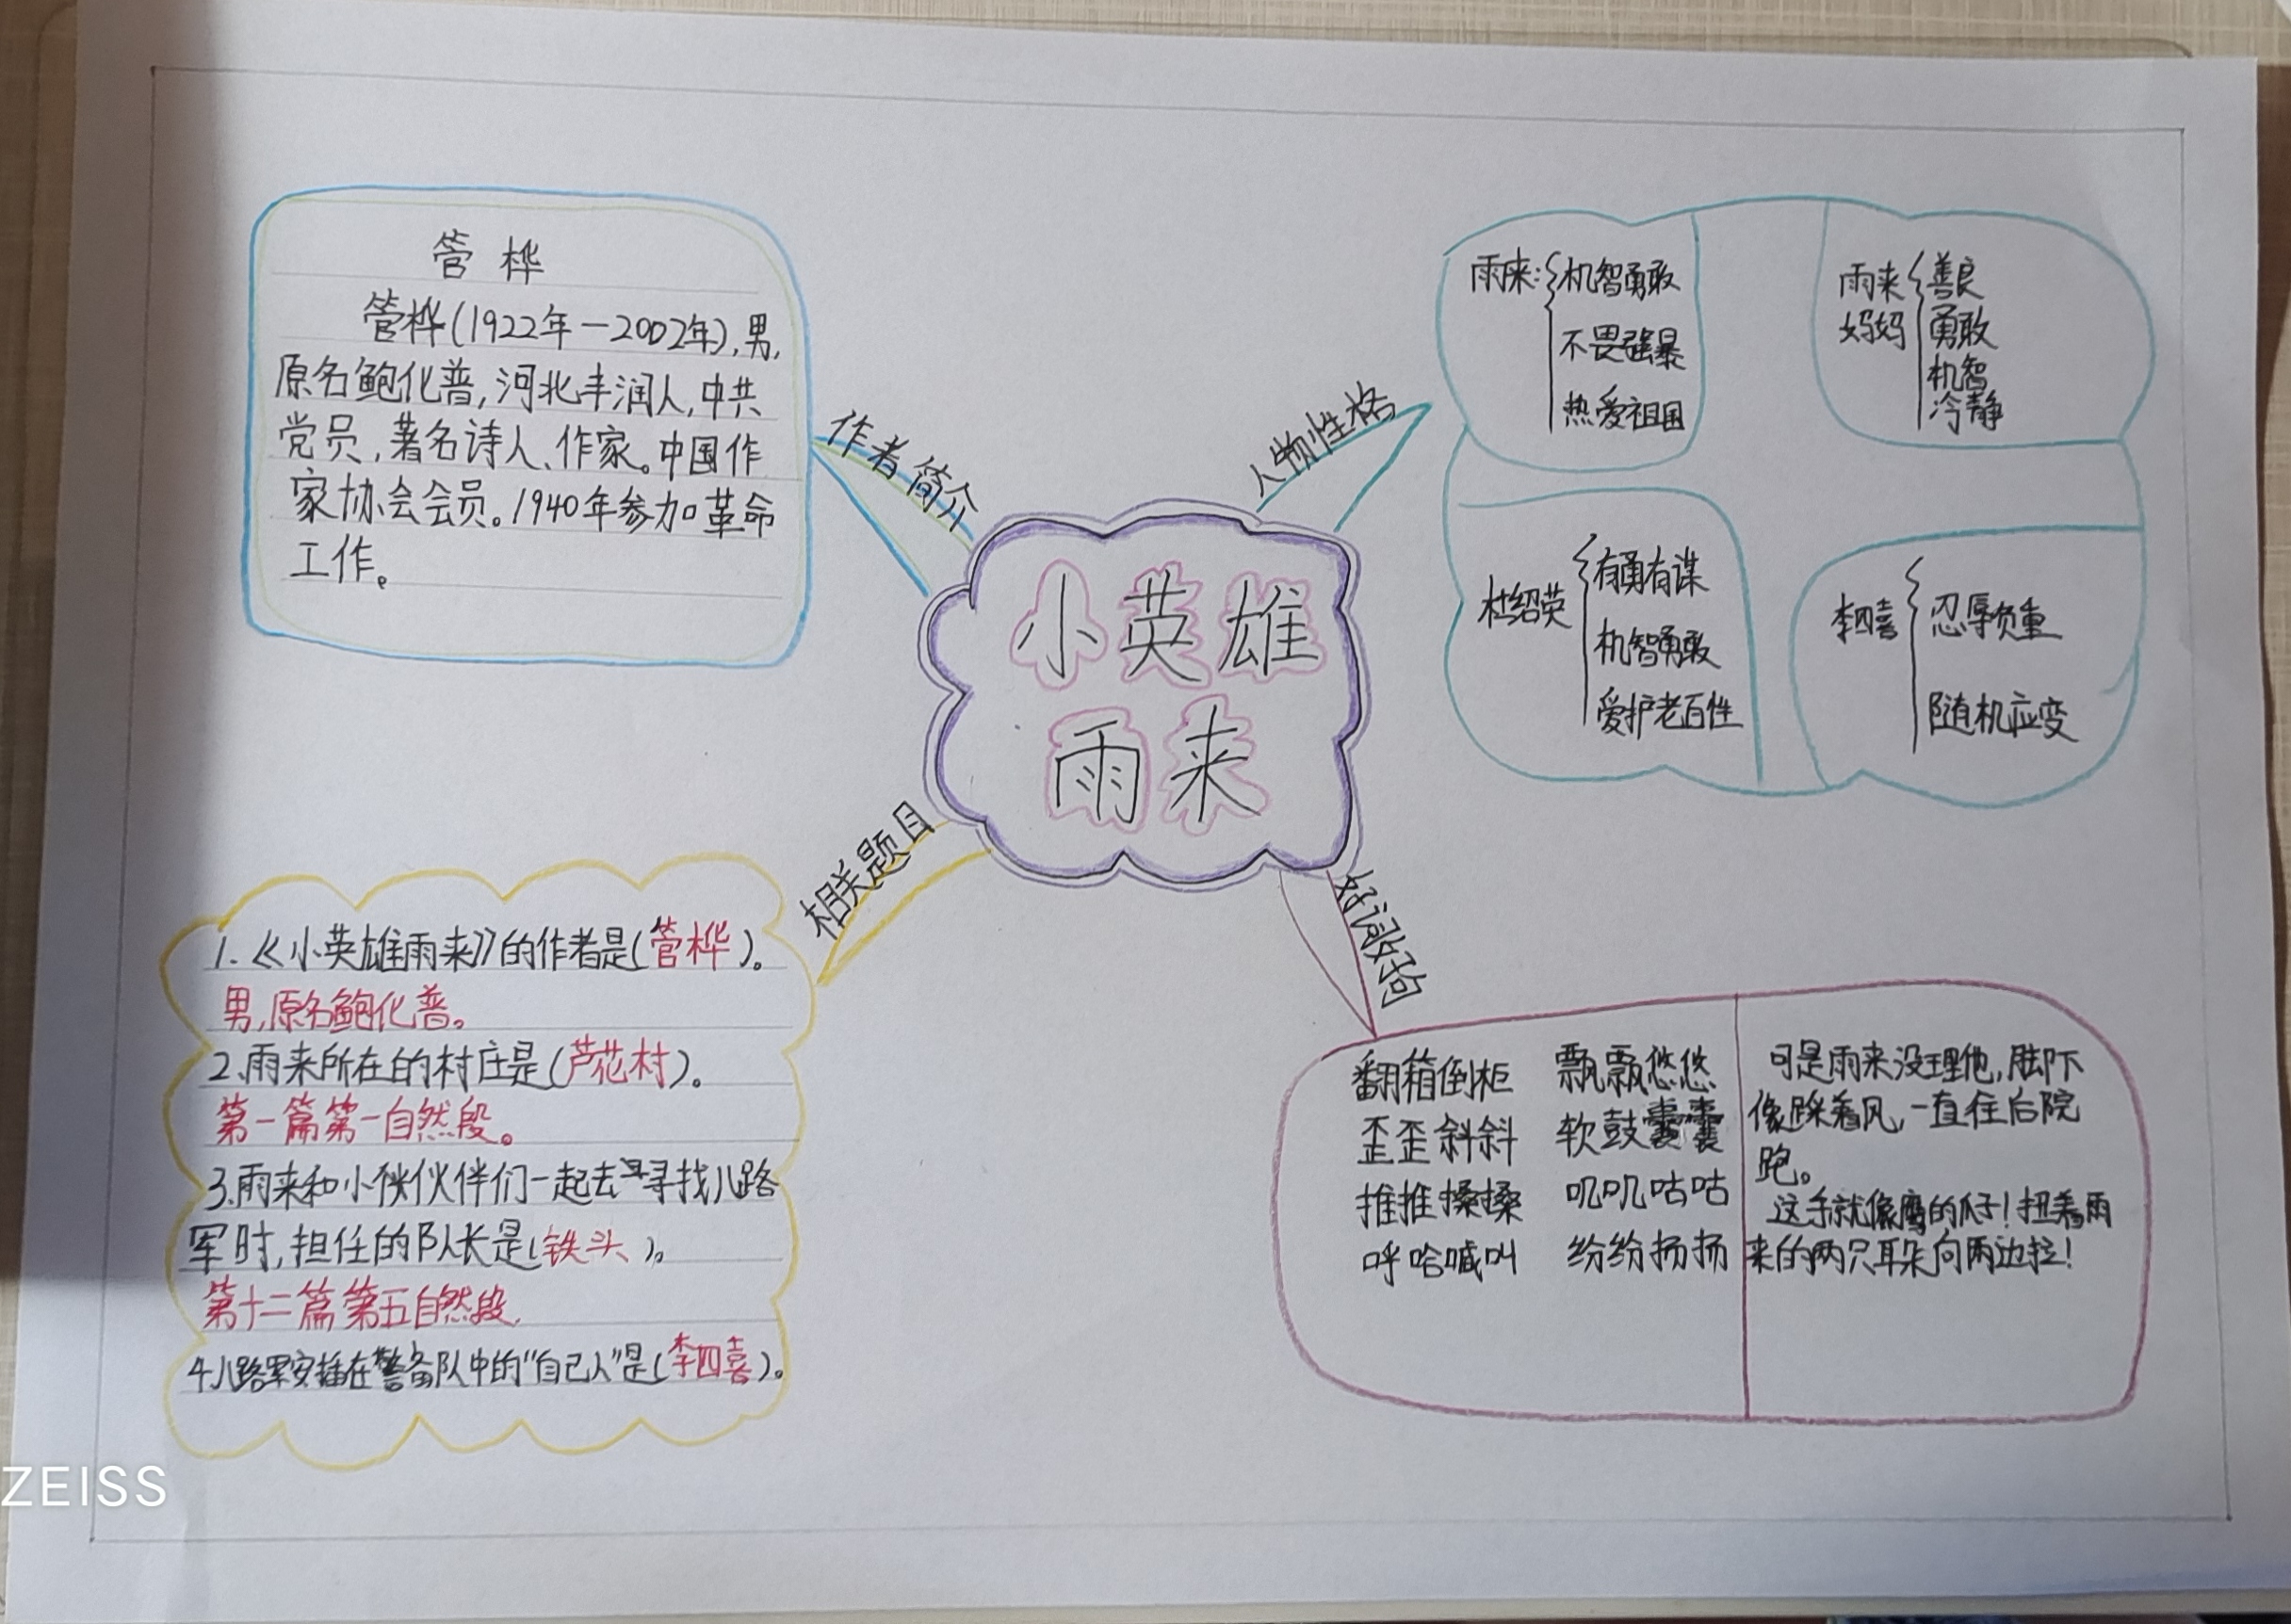 管桦
管桦(1922年—2002年),男,
原名鲍化普,河北丰润人,中共
党员,著名诗人、作家。中国作
家协会会员。1940年参加革命
工作。
作者简介
人物性格
雨来:
机智勇敢
不畏强暴
热爱祖国
雨来
妈妈
善良
勇敢
机智
冷静
杜绍英
有勇有谋
机智勇敢
爱护老百性
李四喜
忍辱负重
随机应变
小英雄
雨来
相关题目
1.《小英雄雨来》的作者是(管桦)。
男,原名鲍化普。
2.雨来所在的村庄是(芦花村)。
第一篇第一自然段。
3.雨来和小伙伴们一起去寻找八路
军时,担任的队长是(铁头)。
第十二篇第五自然段.
4八路军安插在警备队中的“自己人”是(李四喜)。
好词好句
翻箱倒柜 飘飘悠悠
歪歪斜斜 软鼓囊囊
推推搡搡 叽叽咕咕
呼哈喊叫 纷纷扬扬
可是雨来没理他,脚下
像踩着风,一直往后院
跑。
这手就像鹰的爪子!扭着雨
来的两只耳朵向两边拉!
ZEISS